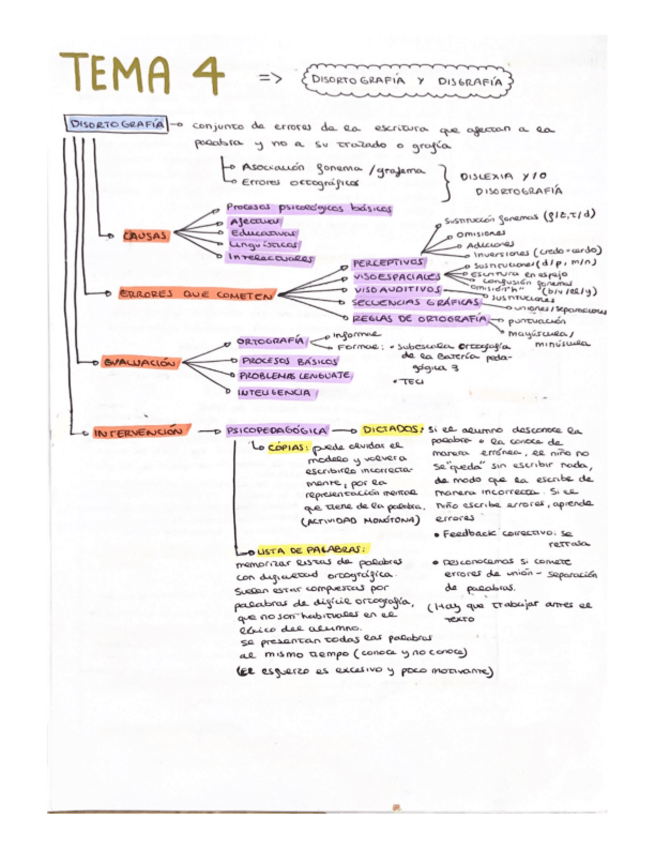 TEMA 4 => DISORTOGRAFÍA Y DISGRAFÍA
DISORTOGRAFÍA → conjunto de errores de la escritura que afectan a la
palabra y no a su trazado o grafía
→ Asociación fonema /grafema
→ Errores ortográficos
DISLEXIA Y/O
DISORTOGRAFÍA
CAUSAS
Procesos psicológicos básicos
Afectivas
Educativas
Lingüísticas
Interactivas
ERRORES QUE COMETEN
PERCEPTIVOS
Sustitución fonemas (f/z, t/d)
Omisiones
Adiciones
Inversiones (credo-cerdo)
VISOESPACIALES
Sustituciones (d/p, m/n)
escritura en espejo
confusión fonemas
(b/v/ll/y)
VISOAUDITIVOS
omisión "h"
sustituciones
SECUENCIAS GRÁFICAS
uniones/separaciones
REGLAS DE ORTOGRAFÍA
puntuación
mayúscula/
minúscula
EVALUACIÓN
ORTOGRAFÍA
Informal
Formal: • Subescala Ortografía
de la Batería peda-
gógica 3
• TECI
PROCESOS BÁSICOS
PROBLEMAS LENGUATE
INTELIGENCIA
INTERVENCIÓN → PSICOPEDAGÓGICA → DICTADOS: Si el alumno desconoce la
palabra o la conoce de
manera errónea, el niño no
se "queda" sin escribir nada,
de modo que la escribe de
manera incorrecta. Si el
niño escribe errores, aprende
errores
• Feedback correctivo: se
retrasa
• Desconocemos si comete
errores de unión - separación
de palabras.
(Hay que trabajar antes el
texto
COPIAS: puede olvidar el
modelo y volverá
escribirlo incorrecta-
mente, por la
representación mental
que tiene de la palabra.
(ACTIVIDAD MONÓTONA)
LISTA DE PALABRAS:
memorizar listas de palabras
con dificultad ortográfica.
Suelen estar compuestas por
palabras de difícil ortografía,
que no son habituales en el
léxico del alumno.
Se presentan todas las palabras
al mismo tiempo (conoce y no conoce)
(El esfuerzo es excesivo y poco motivante)